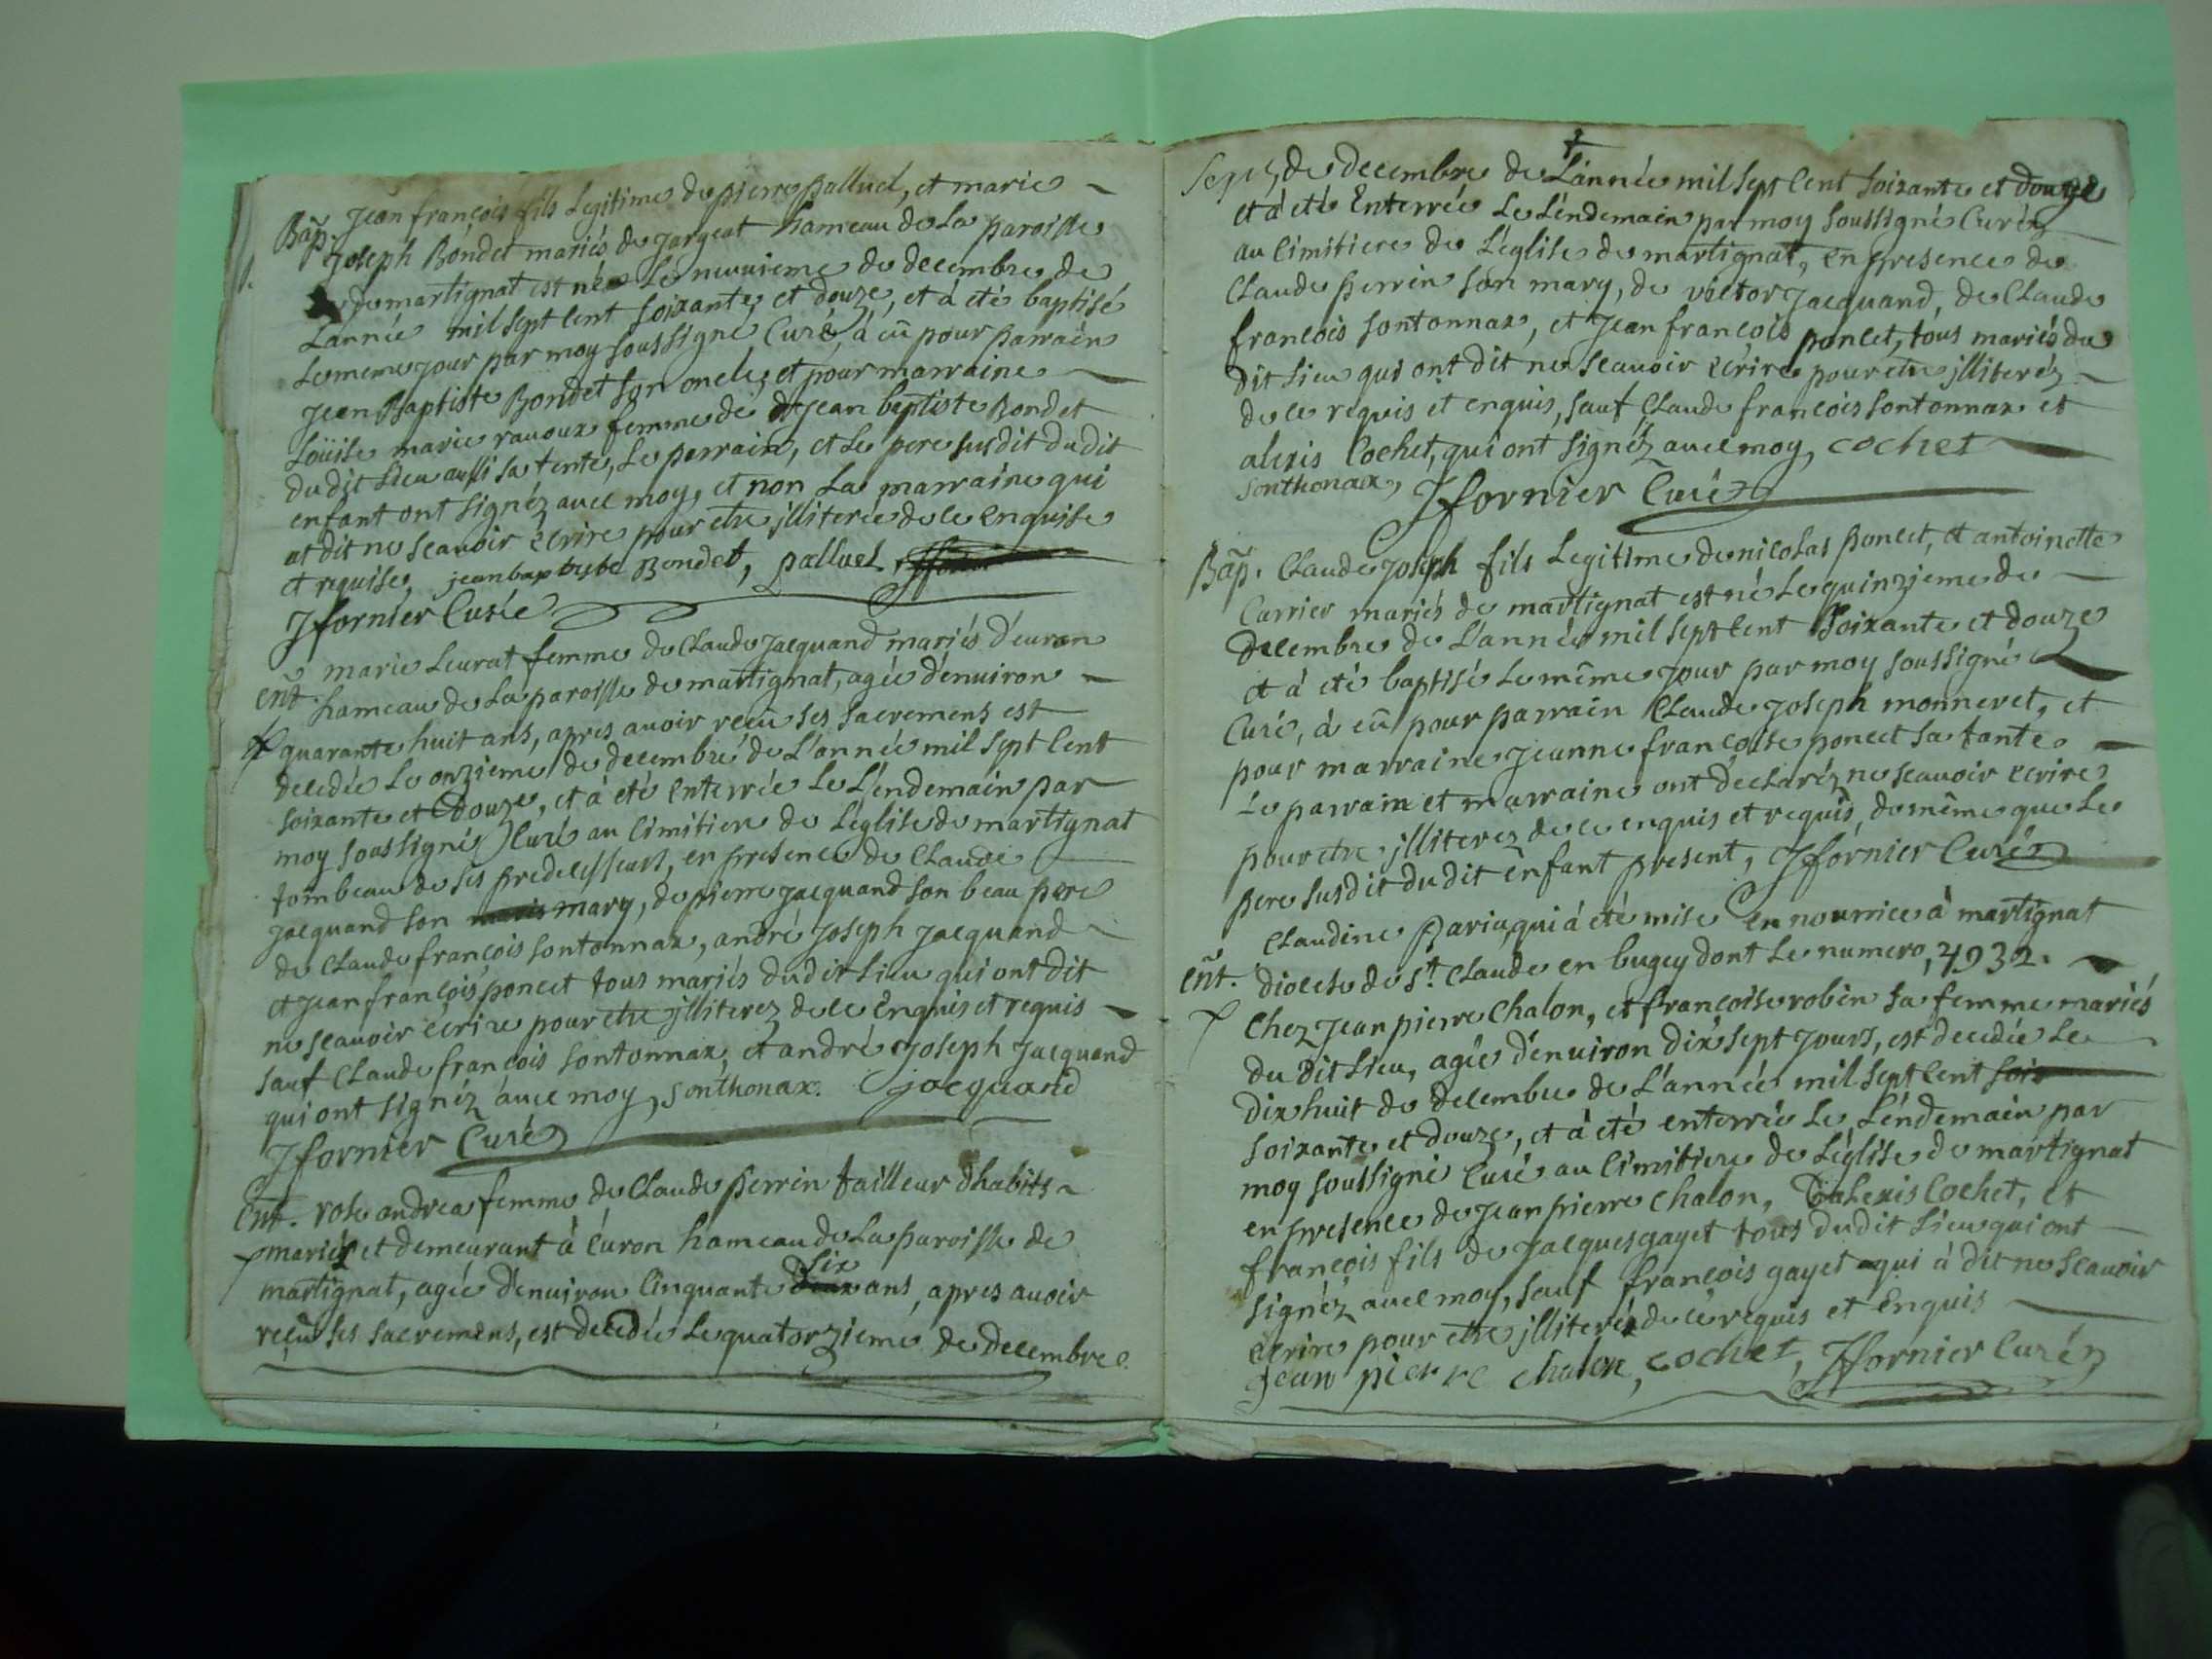 Bap. Jean françois fils Legitime de pierre palluel, et marie
joseph Bondet mariés de jargeat hameau de La paroisse
de martignat est né Le neuvieme de decembre de
Lannée mil sept Cent soixante et douze, et à eté baptisé
Le meme jour par moy soussigné Curé, à eû pour parrain
jean Baptiste Bondet son oncle, et pour marraine
Loüise marie ravoux femme de jean baptiste Bondet
du dit Lieu aussi sa tente, Le parrain, et Le pere susdit dudit
enfant ont signéz avec moy, et non La marraine qui
at dit ne scavoir ecrire pour etre jlliterée de ce enquise
et requise, jean baptiste Bondet, palluel
Jfornier Curé
ent. marie Leurat femme de Claude jacquand mariés d'euron
hameau de La paroisse de martignat, agée d'environ
quarante huit ans, apres avoir reçu ses sacremens est
decedée Le onzieme de decembre de L'année mil sept Cent
soixante et douze, et à eté enterrée Le Lendemain par
moy soussigné Curé au Cimitiere de L'eglise de martignat
tombeau de ses predecesseurs, en presence de Claude
jacquand son mary, de pierre jacquand son beau pere
de Claude françois sontonnax, andré joseph jacquand
et jean françois poncet tous mariés dudit Lieu qui ont dit
ne scavoir ecrire pour etre jlliterez de ce Enquis et requis
sauf Claude françois sontonnax, et andré joseph jacquand
qui ont signéz avec moy, sonthonax. jacquand
Jfornier Curé
Ent. rose andrea femme de Claude perrin tailleur d'habits
mariés et demeurant à Euron hameau de La paroisse de
martignat, agée d'environ Cinquante six ans, apres avoir
reçu ses sacremens, est decedée Le quatorzieme de decembre
de decembre de L'année mil sept Cent soixante et douze
et à eté Enterrée Le Lendemain par moy soussigné Curé
au Cimitiere de L'eglise de martignat, en presence de
Claude perrin son mary, de victor jacquand, de Claude
francois sontonnax, et jean francois poncet, tous mariés du
dit Lieu qui ont dit ne scavoir ecrire pour etre jlliteréz
de ce requis et enquis, sauf Claude francois sontonnax et
alexis Cochet, qui ont signéz avec moy, cochet
sonthonax, Jfornier Curé
Bap. Claude joseph fils Legitime de nicolas poncet, et antoinette
Carrier mariés de martignat est né Le quinzieme de
decembre de L'année mil sept Cent soixante et douze
et à eté baptisé Le même jour par moy soussigné
Curé, à eû pour parrain Claude joseph monneret, et
pour marraine jeanne françoise poncet sa tante
Le parrain et marraine ont déclaréz ne scavoir ecrire
pour etre jlliterez de ce enquis et requis, de même que Le
pere susdit dudit enfant present, Jfornier Curé
Claudine qui à eté mise en nourrice à martignat
ent. diocese de St. Claude en bugey dont Le numero, 4932.
Chez jean pierre Chalon, et françoise robin sa femme mariés
du dit Lieu, agée d'environ dix sept jours, est decedée Le
dix huit de decembre de L'année mil sept Cent
soixante et douze, et à eté enterrée Le Lendemain par
moy soussigné Curé au Cimitiere de L'eglise de martignat
en presence de jean pierre Chalon, alexis Cochet, et
françois fils de jacques gayet tous dudit Lieu qui ont
signéz avec moy, sauf francois gayet qui à dit ne scavoir
ecrire pour etre jlliteré de ce requis et Enquis
jean pierre chalon, cochet, Jfornier Curé